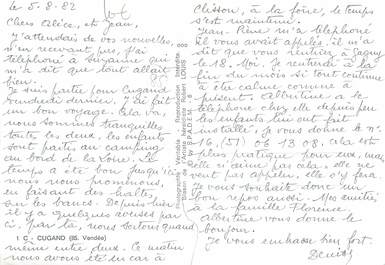 le 5.8.82
Chers Alice, et Jean,
J'attendais de vos nouvelles,
n'en recevant pas, j'ai
téléphoné à Suzanne qui
m'a dit que tout allait
bien.
Je suis partie pour Cugand
vendredi dernier. J'ai fait
un bon voyage. Cela va,
nous sommes tranquilles
toutes les deux, les enfants
sont partis au camping
au bord de la Loire. Le
temps a été bon jusqu'ici
nous nous promenons,
en faisant des haltes,
sur les bancs. Depuis hier
il y a quelques averses par
ci, par là, nous sortons quand
1 C - CUGAND (85. Vendée)
même entre deux. Ce matin
nous avons été en car à
Photographie Véritable - Reproduction Interdite
Robert LOUIS
SPADEM
Clisson, à la foire, le temps
s'est maintenu.
Jean-Pierre m'a téléphoné
il vous avait appelés, il m'a
dit que vous rentriez à Gagny
le 18. Moi, je rentrerai à la
fin du mois si tout continue
à être calme comme à
présent. Albertine a le
téléphone chez elle depuis peu
les enfants lui ont fait
installer, je vous donne le n°
16, (51) 06 13 08, cela est
plus pratique pour eux, mais
elle n'aime pas cela, elle ne
veut pas appeler, elle s'y fera.
Je vous souhaite donc un
bon repos aussi. Mes amitiés
à la famille Florence.
Albertine vous donne le
bonjour.
Je vous embrasse bien fort.
Denise